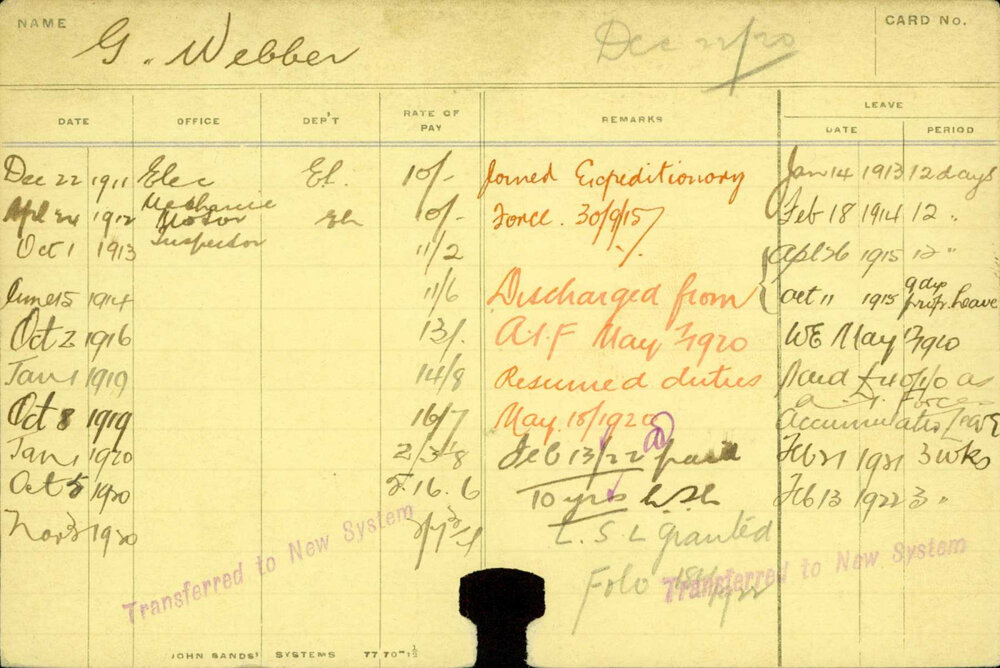 NAME
G. Webber
Dec 22/20
CARD No.
DATE OFFICE DEP'T RATE OF PAY REMARKS LEAVE
DATE PERIOD
Dec 22 1911 Elec El. 10/- Joined Expeditionary Jan 14 1913 12 days
Mechanic
Apl 24 1912 Motor 10/- Force. 30/9/15 Feb 18 1914 12 "
Inspector
Oct 1 1913 11/2 Apl 26 1915 12 "
June 15 1914 11/6 Discharged from Oct 11 1915 9 dys
Leave
Oct 2 1916 13/. A.I.F May 7/1920 WE May 7/1920
Jan 1 1919 14/8 Resumed duties Paid £40/1/0 as
Oct 8 1919 16/7 May 18/1920 Accumulated Leave
Jan 1 1920 2/3/8 Feb 13/22 paid Feb 21 1921 3 wks
Oct 5 1920 5.16.6 10 yrs Feb 13 1922 3 "
Nov 3 1920 L.S.L granted
Folo
Transferred to New System
Transferred to New System
JOHN SANDS' SYSTEMS 7770-1½